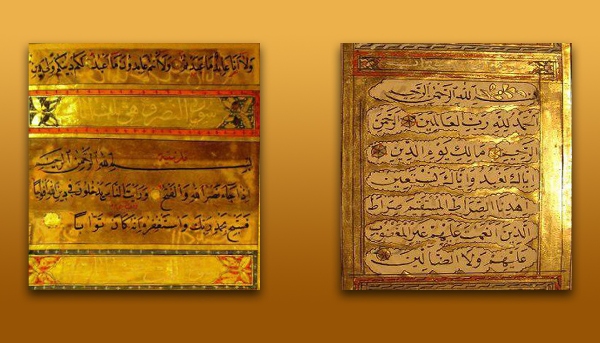 ولا أنا عابد ما عبدتم ولا أنتم عابدون ما أعبد لكم دينكم ولي دين
سورة النصر
بسم الله الرحمن الرحيم
إذا جاء نصر الله والفتح ورأيت الناس يدخلون في دين الله أفواجا
فسبح بحمد ربك واستغفره إنه كان توابا
بسم الله الرحمن الرحيم
الحمد لله رب العالمين الرحمن
الرحيم مالك يوم الدين
إياك نعبد وإياك نستعين
اهدنا الصراط المستقيم صراط
الذين أنعمت عليهم غير المغضوب
عليهم ولا الضالين